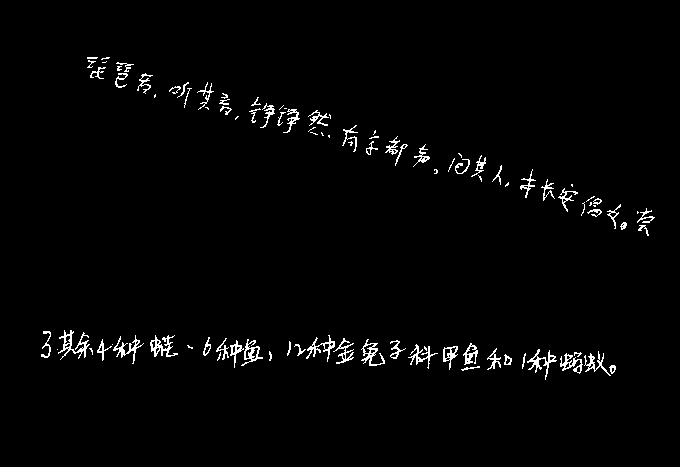 琵琶音,听其音,铮铮然有京都声。问其人,本长安倡女。尝
了其余4种蛙、6种鱼,12种金龟子科甲鱼和1种蚂蚁。